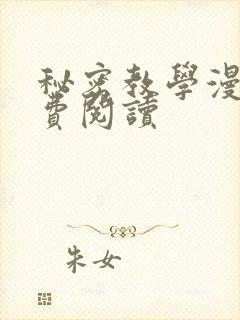 秘密教學漫
費閱讀
朱女